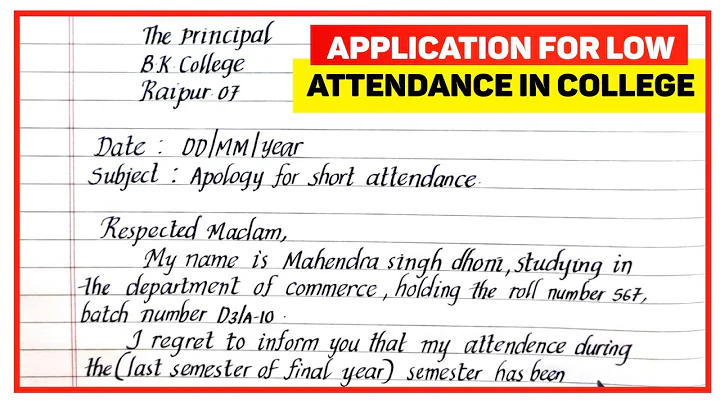 The Principal
B.K. College
Raipur. 07
APPLICATION FOR LOW
ATTENDANCE IN COLLEGE
Date : DD/MM/year
Subject : Apology for short attendance.
Respected Madam,
My name is Mahendra singh dhoni, studying in
the department of commerce, holding the roll number 567,
batch number D3/A-10.
I regret to inform you that my attendence during
the (last semester of final year) semester has been